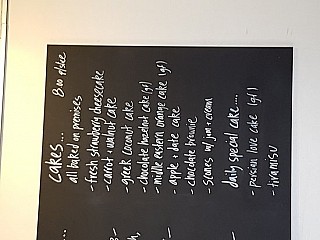 cakes... 8.00 slice
all baked on premises
- fresh strawberry cheesecake
- carrot + walnut cake
- greek coconut cake
- chocolate hazelnut cake (gf)
- middle eastern orange cake (gf)
- apple + date cake
- chocolate brownie
- scones w/ jam + cream
daily special cake....
- persian love cake (gf)
- tiramisu